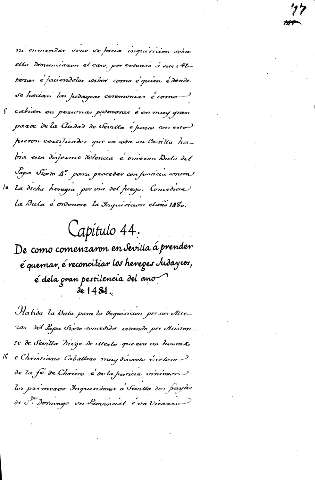 77
ni enmendar sino se hacia inquisicion sobre
ello denunciaron el caso, por estenso á sus Al-
tezas é faciendoles saber como é quien é donde
se hacian las judaycas ceremonias é como
cabian en personas poderosas é en muy gran
5
parte de la Ciudad de Sevilla é junto con esto
fueron certificados que en toda su Castilla ha-
bia esta disforme dolencia é ovieron Bula del
Papa Sixto 4º para proceder con justicia contra
la dicha heregia por via del fuego. Concedióse
10
la Bula é ordenose la Inquisicion el año 1480.
Capitulo 44.
De como comenzaron en Sevilla á prender
é quemar, é reconciliar los hereges Judaycos,
é de la gran pestilencia del año
de 1481.
Habida la Bula para la Inquisicion por sus Alte-
zas del Papa Sixto concedida estando por Asisten-
te de Sevilla Diego de Merlo que era un honrado
é Christiano Caballero muy discreto é celoso
15
de la fé de Christo é de la justicia vinieron
los primeros Inquisidores á Sevilla dos frayles
de Sto. Domingo un Provincial é un Vicario